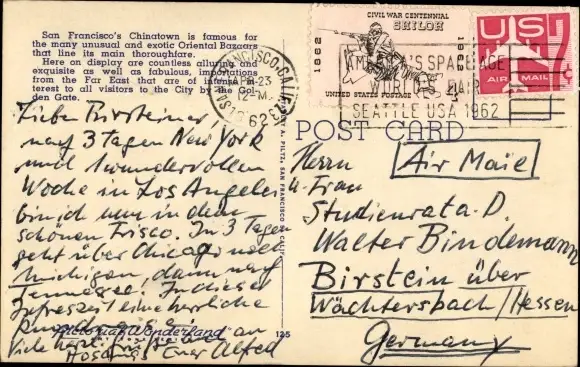 San Francisco's Chinatown is famous for
the many unusual and exotic Oriental Bazaars
that line its main thoroughfare.
Here on display are countless alluring and
exquisite as well as fabulous, importations
from the Far East that are of intense in-
terest to all visitors to the City by the Gol-
den Gate.
CIVIL WAR CENTENNIAL
SHILOH
1862
1962
UNITED STATES POSTAGE
4¢
US
7¢
AIR MAIL
SAN FRANCISCO, CALIF.
PM
23
1962
AMERICA'S SPACE AGE
WORLD'S FAIR
SEATTLE USA 1962
POST CARD
Lieber Birsteiner,
nach 3 Tagen New York
und 1 wundervollen
Woche in Los Angeles
bin ich nun in dem
schönen Frisco. In 3 Tagen
geht über Chicago nach
Michigan, dann nach
Tennessee, In dieser
Jahreszeit eine herrliche
an
Viele herzl. Grüße
Euer Alfred
Pictorial Wonderland
125
PILTZ, SAN FRANCISCO
Air Mail
Herrn
u. Frau
Studienrat a. D.
Walter Bindemann
Birstein über
Wächtersbach/Hessen
Germany